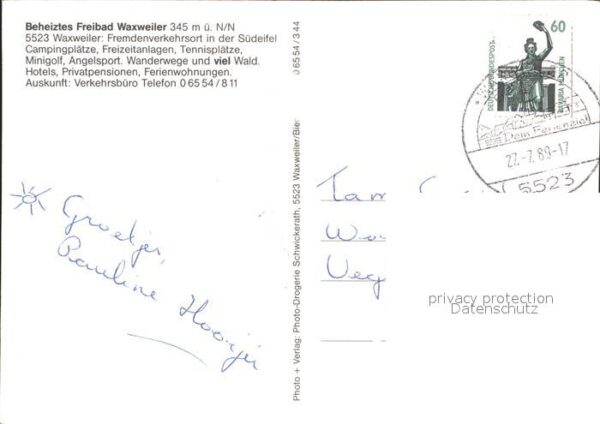 Beheiztes Freibad Waxweiler 345 m ü. N/N
5523 Waxweiler: Fremdenverkehrsort in der Südeifel
Campingplätze, Freizeitanlagen, Tennisplätze,
Minigolf, Angelsport. Wanderwege und viel Wald.
Hotels, Privatpensionen, Ferienwohnungen.
Auskunft: Verkehrsbüro Telefon 0 65 54 / 8 11
Groetjes,
Pauline Hooijer
0 65 54 / 3 44
Photo + Verlag: Photo-Drogerie Schwickerath, 5523 Waxweiler/Bier
60
DEUTSCHE BUNDESPOST
BAVARIA MÜNCHEN
Dem Ferienziel
27.-7.89-17
5523
privacy protection
Datenschutz